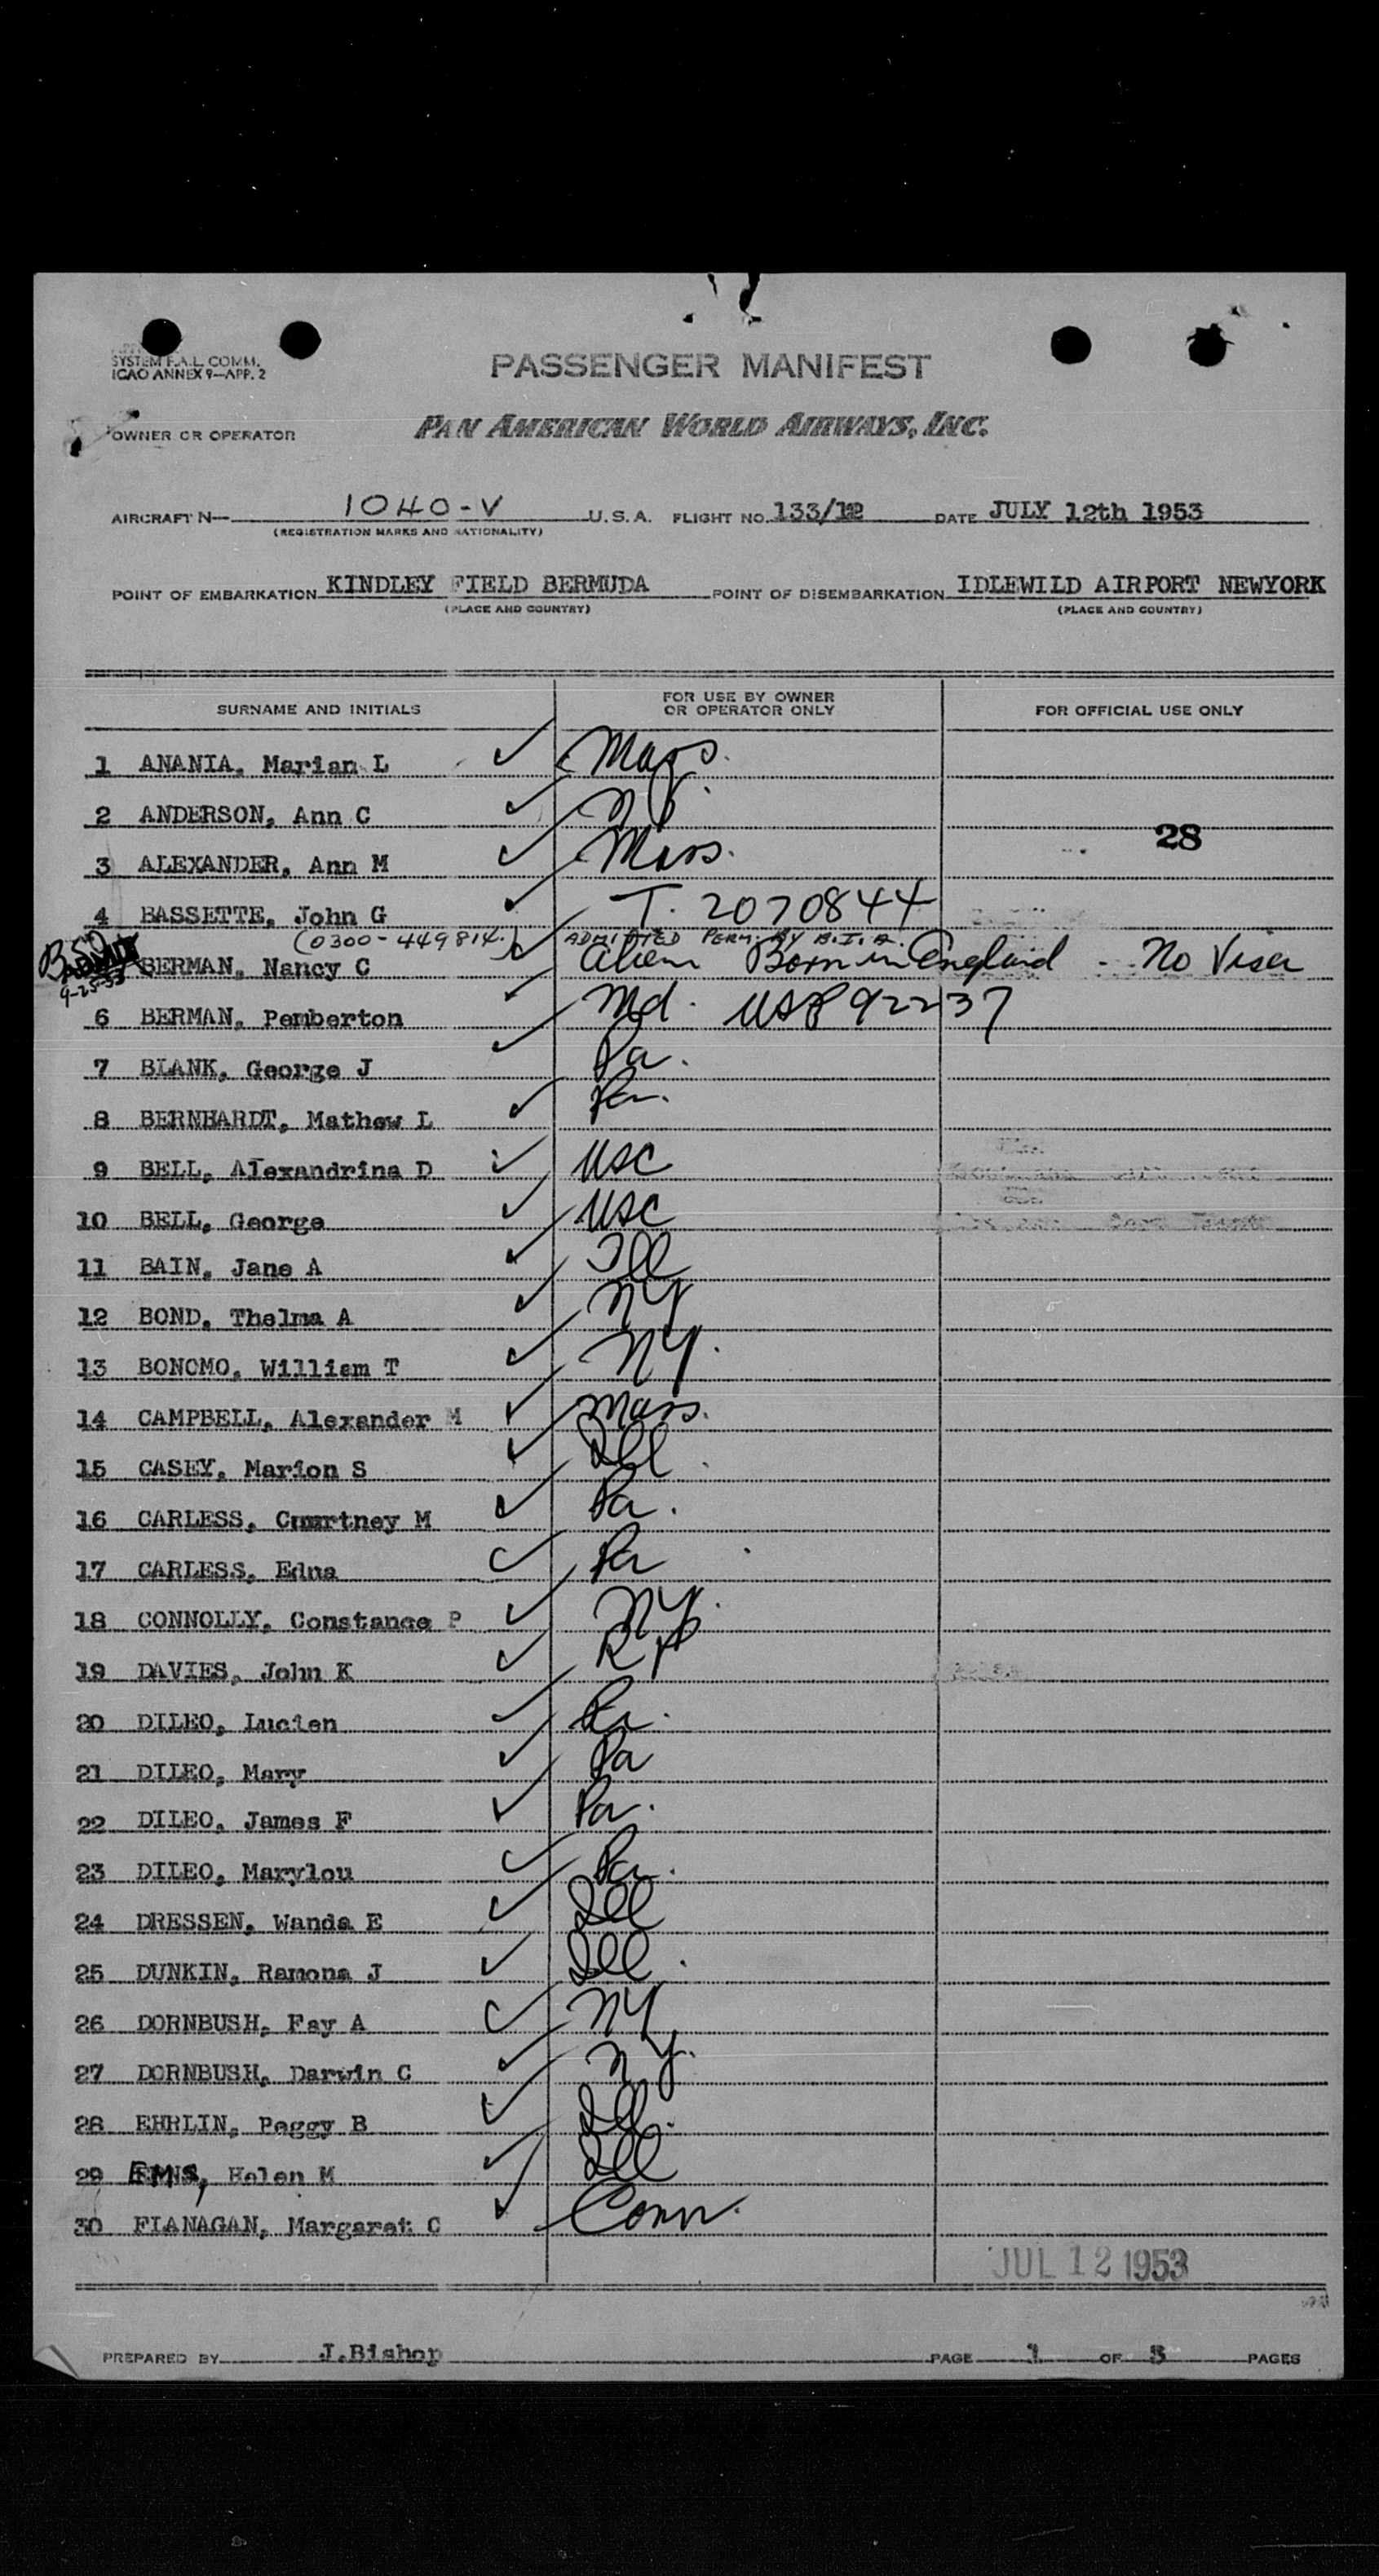 SYSTEM F.A.L. COMM.
ICAO ANNEX 9—APP. 2
PASSENGER MANIFEST
OWNER OR OPERATOR PAN AMERICAN WORLD AIRWAYS, INC.
AIRCRAFT N— 1040-V U.S.A. FLIGHT NO. 133/12 DATE JULY 12th 1953
(REGISTRATION MARKS AND NATIONALITY)
POINT OF EMBARKATION KINDLEY FIELD BERMUDA POINT OF DISEMBARKATION IDLEWILD AIRPORT NEWYORK
(PLACE AND COUNTRY) (PLACE AND COUNTRY)
SURNAME AND INITIALS FOR USE BY OWNER OR OPERATOR ONLY FOR OFFICIAL USE ONLY
1 ANANIA, Marian L Mass.
2 ANDERSON, Ann C NY.
28
3 ALEXANDER, Ann M Mass.
4 BASSETTE, John G T. 2070844
(0300-449814.) ADMITTED PERM. BY B.I.A.
BERMAN, Nancy C Alien Born in England - No Visa
9-25-53
6 BERMAN, Pemberton Md. USP 92237
7 BLANK, George J Pa.
8 BERNHARDT, Mathew L Pa.
9 BELL, Alexandrina D USC
10 BELL, George USC
11 BAIN, Jane A Ill
12 BOND, Thelma A NY
13 BONOMO, William T NY.
14 CAMPBELL, Alexander M Mass.
15 CASEY, Marion S Ill.
16 CARLESS, Courtney M Pa.
17 CARLESS, Edna Pa
18 CONNOLLY, Constance P NY.
19 DAVIES, John K RP
20 DILEO, Lucien Pa.
21 DILEO, Mary Pa
22 DILEO, James F Pa.
23 DILEO, Marylou Pa.
24 DRESSEN, Wanda E Ill
25 DUNKIN, Ramona J Ill.
26 DORNBUSH, Fay A NY
27 DORNBUSH, Darwin C NY.
28 EHRLIN, Peggy B Ill.
29 EMIS, Helen M Ill
30 FLANAGAN, Margaret C Conn.
JUL 12 1953
PREPARED BY J.Bishop PAGE 1 OF 3 PAGES